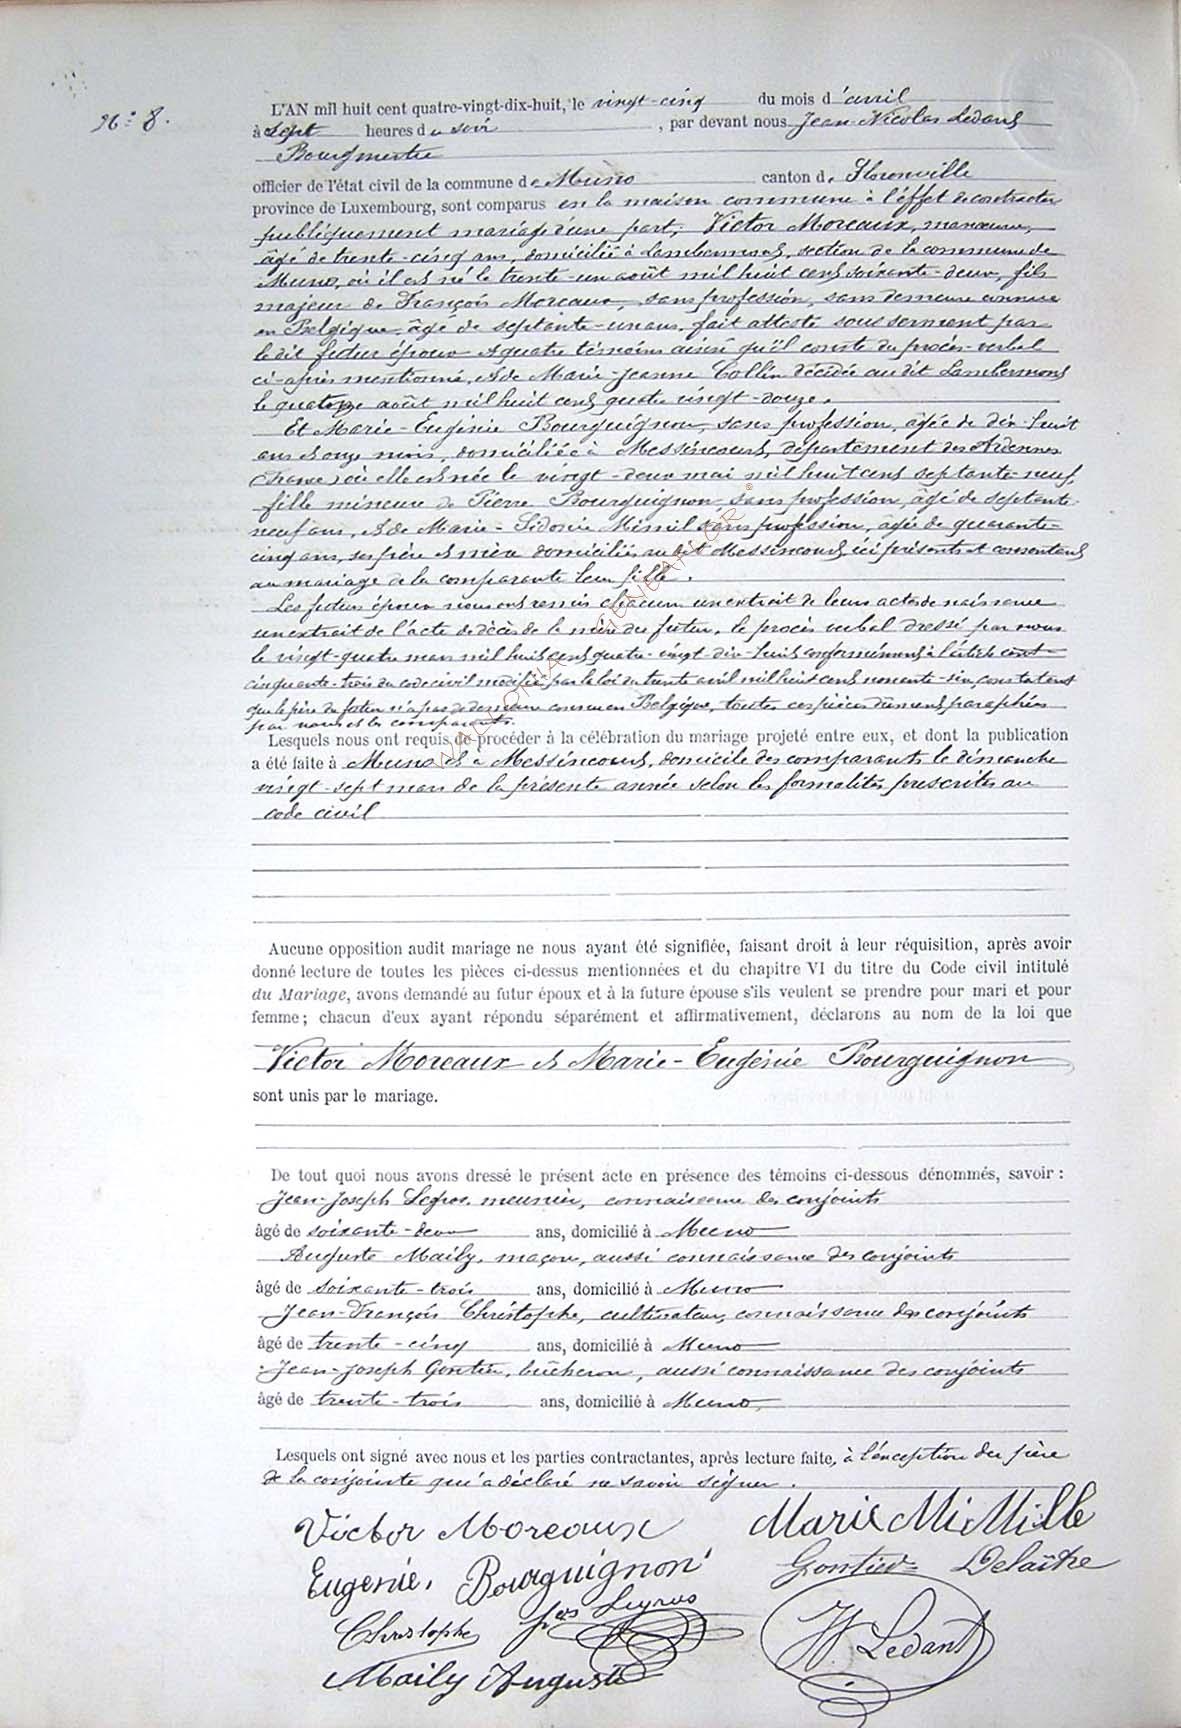 N° 8.
L'AN mil huit cent quatre-vingt-dix-huit, le vingt-cinq du mois d'avril
à sept heures du soir, par devant nous Jean-Nicolas Ledant
Bourgmestre
officier de l'état civil de la commune de Muno canton de Florenville
province de Luxembourg, sont comparus en la maison commune à l'effet de contracter
publiquement mariage d'une part, Victor Moreaux, manœuvre,
âgé de trente-cinq ans, domicilié à Lambermont, section de la commune de
Muno, où il est né le trente-un août mil huit cent soixante-deux, fils
majeur de François Moreaux, sans profession, sans demeure connue
en Belgique, âgé de septante-un ans, fait attesté sous serment par
le dit futur époux & quatre témoins ainsi qu'il conste du procès-verbal
ci-après mentionné, & de Marie-Jeanne Collin décédée au dit Lambermont
le quatorze août mil huit cent quatre vingt-douze.
Et Marie-Eugénie Bourguignon, sans profession, âgée de dix-huit
ans & onze mois, domiciliée à Messincourt, département des Ardennes
(France) où elle est née le vingt-deux mai mil huit cent septante-neuf,
fille mineure de Pierre Bourguignon, sans profession, âgé de septante-
neuf ans, & de Marie-Sidonie Mimil sans profession, âgée de quarante-
cinq ans, ses père & mère domiciliés au dit Messincourt, ici présents et consentants
au mariage de la comparante leur fille.
Les futurs époux nous ont remis chacun un extrait de leurs actes de naissance
un extrait de l'acte de décès de la mère du futur, le procès verbal dressé par nous
le vingt-quatre mars mil huit cent quatre-vingt-dix-huit conformément à l'article cent
cinquante-trois du code civil modifié par la loi du trente avril mil huit cent nonante-six, constatant
que le père du futur n'a pas de demeure connue en Belgique, toutes ces pièces dûment paraphées
par nous et les comparants.
Lesquels nous ont requis de procéder à la célébration du mariage projeté entre eux, et dont la publication
a été faite à Muno & à Messincourt, domicile des comparants le dimanche
vingt-sept mars de la présente année selon les formalités prescrites au
code civil
Aucune opposition audit mariage ne nous ayant été signifiée, faisant droit à leur réquisition, après avoir
donné lecture de toutes les pièces ci-dessus mentionnées et du chapitre VI du titre du Code civil intitulé
du Mariage, avons demandé au futur époux et à la future épouse s'ils veulent se prendre pour mari et pour
femme ; chacun d'eux ayant répondu séparément et affirmativement, déclarons au nom de la loi que
Victor Moreaux & Marie-Eugénie Bourguignon
sont unis par le mariage.
De tout quoi nous avons dressé le présent acte en présence des témoins ci-dessous dénommés, savoir :
Jean-Joseph Legros, meunier, connaissance des conjoints
âgé de soixante-deux ans, domicilié à Muno
Auguste Maily, maçon, aussi connaissance des conjoints
âgé de soixante-trois ans, domicilié à Muno
Jean-François Christophe, cultivateur, connaissance des conjoints
âgé de trente-cinq ans, domicilié à Muno
Jean-Joseph Gontier, bûcheron, aussi connaissance des conjoints
âgé de trente-trois ans, domicilié à Muno,
Lesquels ont signé avec nous et les parties contractantes, après lecture faite, à l'exception du père
de la conjointe qui a déclaré ne savoir signer.
Victor Moreaux Marie MiMille
Eugénie Bourguignon Gontier Delaître
Christophe Legros
Ledant
Maily Auguste
WALLONIA GENEAFI.GR